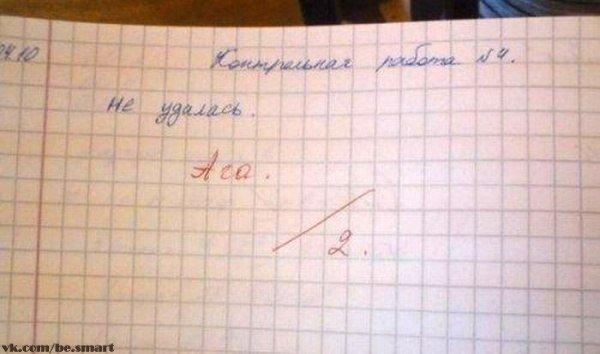 04.10
Контрольная работа №4.
Не удалась.
Ага.
2.
vk.com/be.smart